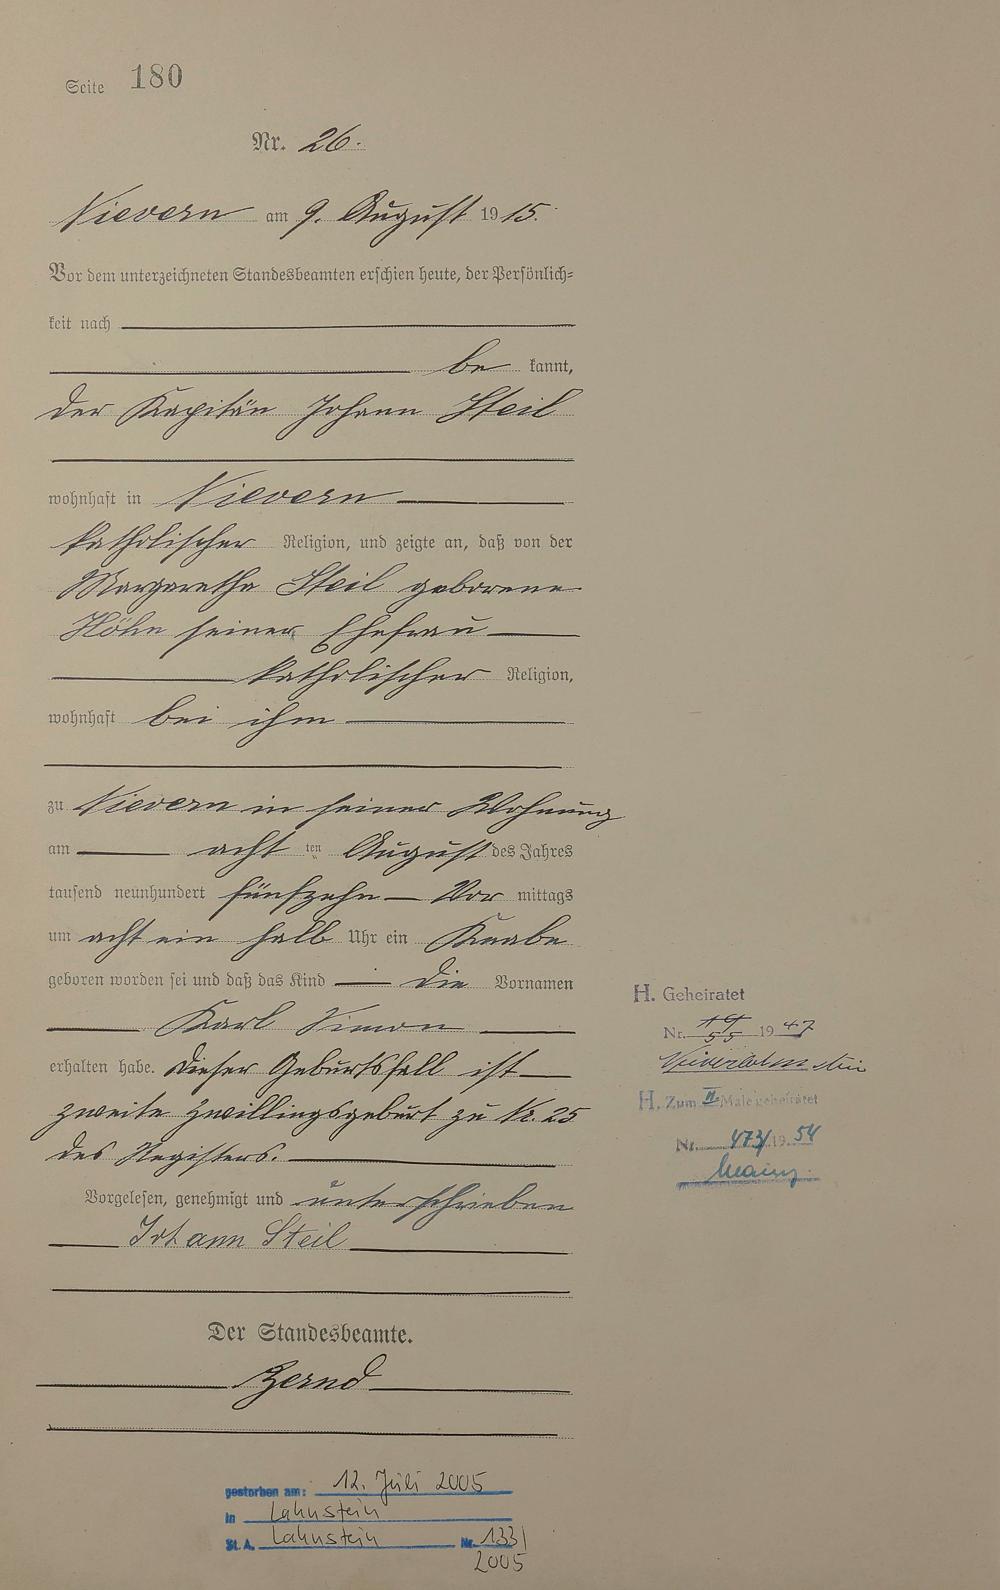 Seite 180
Nr. 26.
Nievern am 9. August 1915.
Vor dem unterzeichneten Standesbeamten erschien heute, der Persönlich-
keit nach
be kannt,
der Kapitän Johann Steil
wohnhaft in Nievern
katholischer Religion, und zeigte an, daß von der
Margaretha Steil geborene
Höhn seiner Ehefrau
katholischer Religion,
wohnhaft bei ihm
zu Nievern in seiner Wohnung
am acht ten August des Jahres
tausend neunhundert fünfzehn Vor mittags
um acht ein halb Uhr ein Knabe
geboren worden sei und daß das Kind die Vornamen
Karl Simon
erhalten habe. Dieser Geburtsfall ist
zweite Zwillingsgeburt zu Nr. 25
des Registers.
Vorgelesen, genehmigt und unterschrieben
Johann Steil
Der Standesbeamte.
Zernd
gestorben am: 12. Juli 2005
in Lahnstein
St. A. Lahnstein Nr. 133/
2005
H. Geheiratet
Nr. 1947
H. Zum II. Male geheiratet
Nr. 473/1954
Mainz